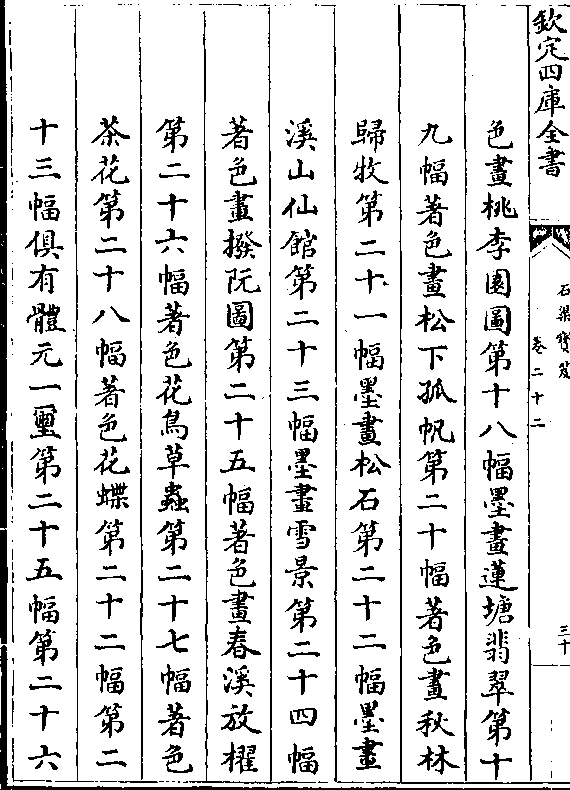 欽定四庫全書
石渠寳笈
卷二十二
三十
色畫桃李園圖第十八幅墨畫蓮塘翡翠第十
九幅著色畫松下孤帆第二十幅著色畫秋林
歸牧第二十一幅墨畫松石第二十二幅墨畫
溪山仙館第二十三幅墨畫雪景第二十四幅
著色畫撥阮圖第二十五幅著色畫春溪放櫂
第二十六幅著色花鳥草蟲第二十七幅著色
茶花第二十八幅著色花蝶第二十二幅第二
十三幅俱有體元一璽第二十五幅第二十六